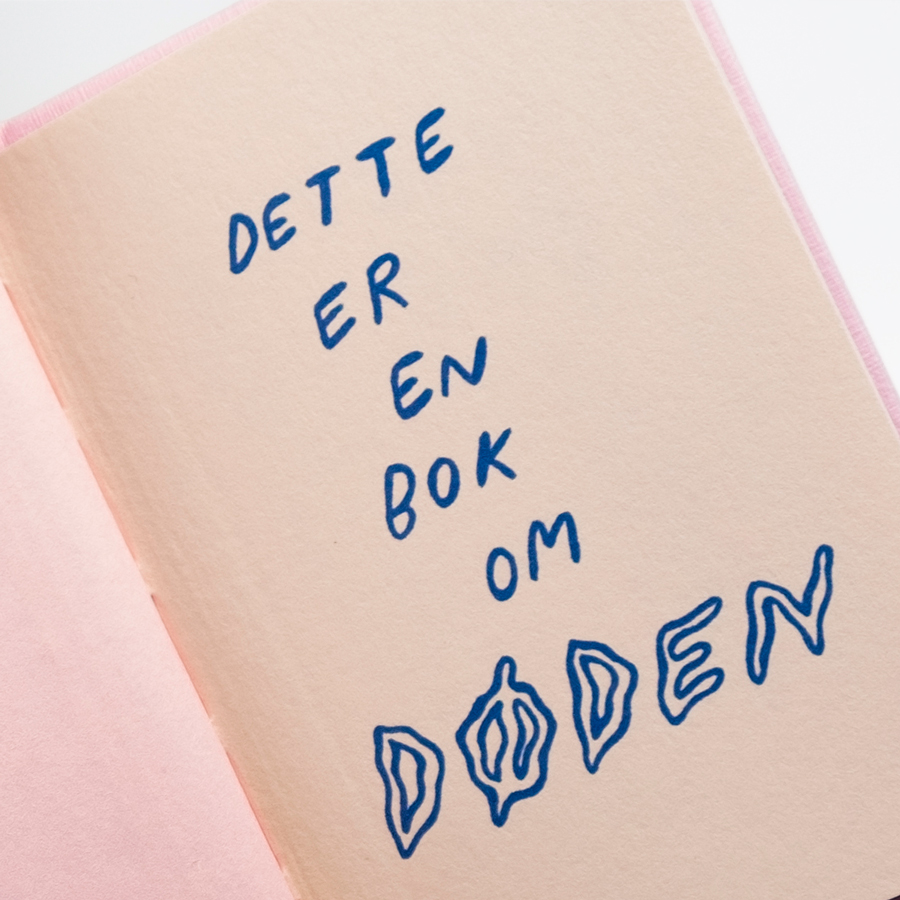 DETTE
ER
EN
BOK
OM
DØDEN